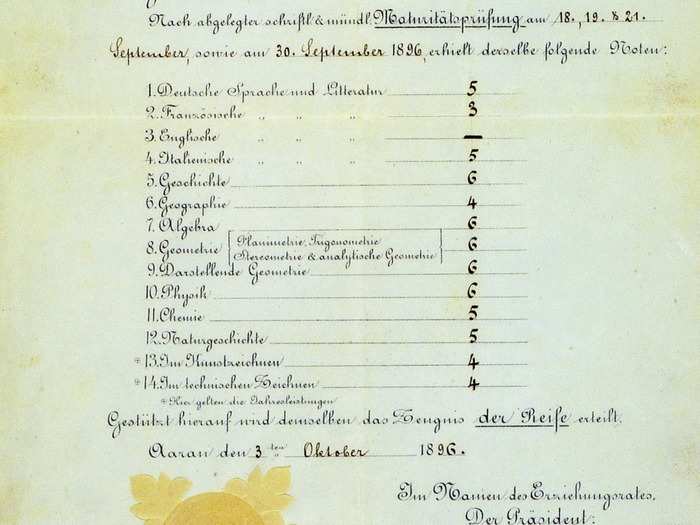 Nach abgelegter schriftl & mündl. Maturitätsprüfung am 18., 19. & 21.
September, sowie am 30. September 1896, erhielt derselbe folgende Noten:
1. Deutsche Sprache und Litteratur 5
2. Französische „ „ „ 3
3. Englische „ „ „ —
4. Italienische „ „ „ 5
5. Geschichte 6
6. Geographie 4
7. Algebra 6
8. Geometrie [Planimetrie, Trigonometrie
Stereometrie & analytische Geometrie] 6
9. Darstellende Geometrie 6
10. Physik 6
11. Chemie 5
12. Naturgeschichte 5
* 13. Im Kunstzeichnen 4
* 14. Im technischen Zeichnen 4
* Hier gelten die Jahresleistungen
Gestützt hierauf wird demselben das Zeugnis der Reife erteilt.
Aarau den 3ten Oktober 1896.
Im Namen des Erziehungsrates,
Der Präsident: